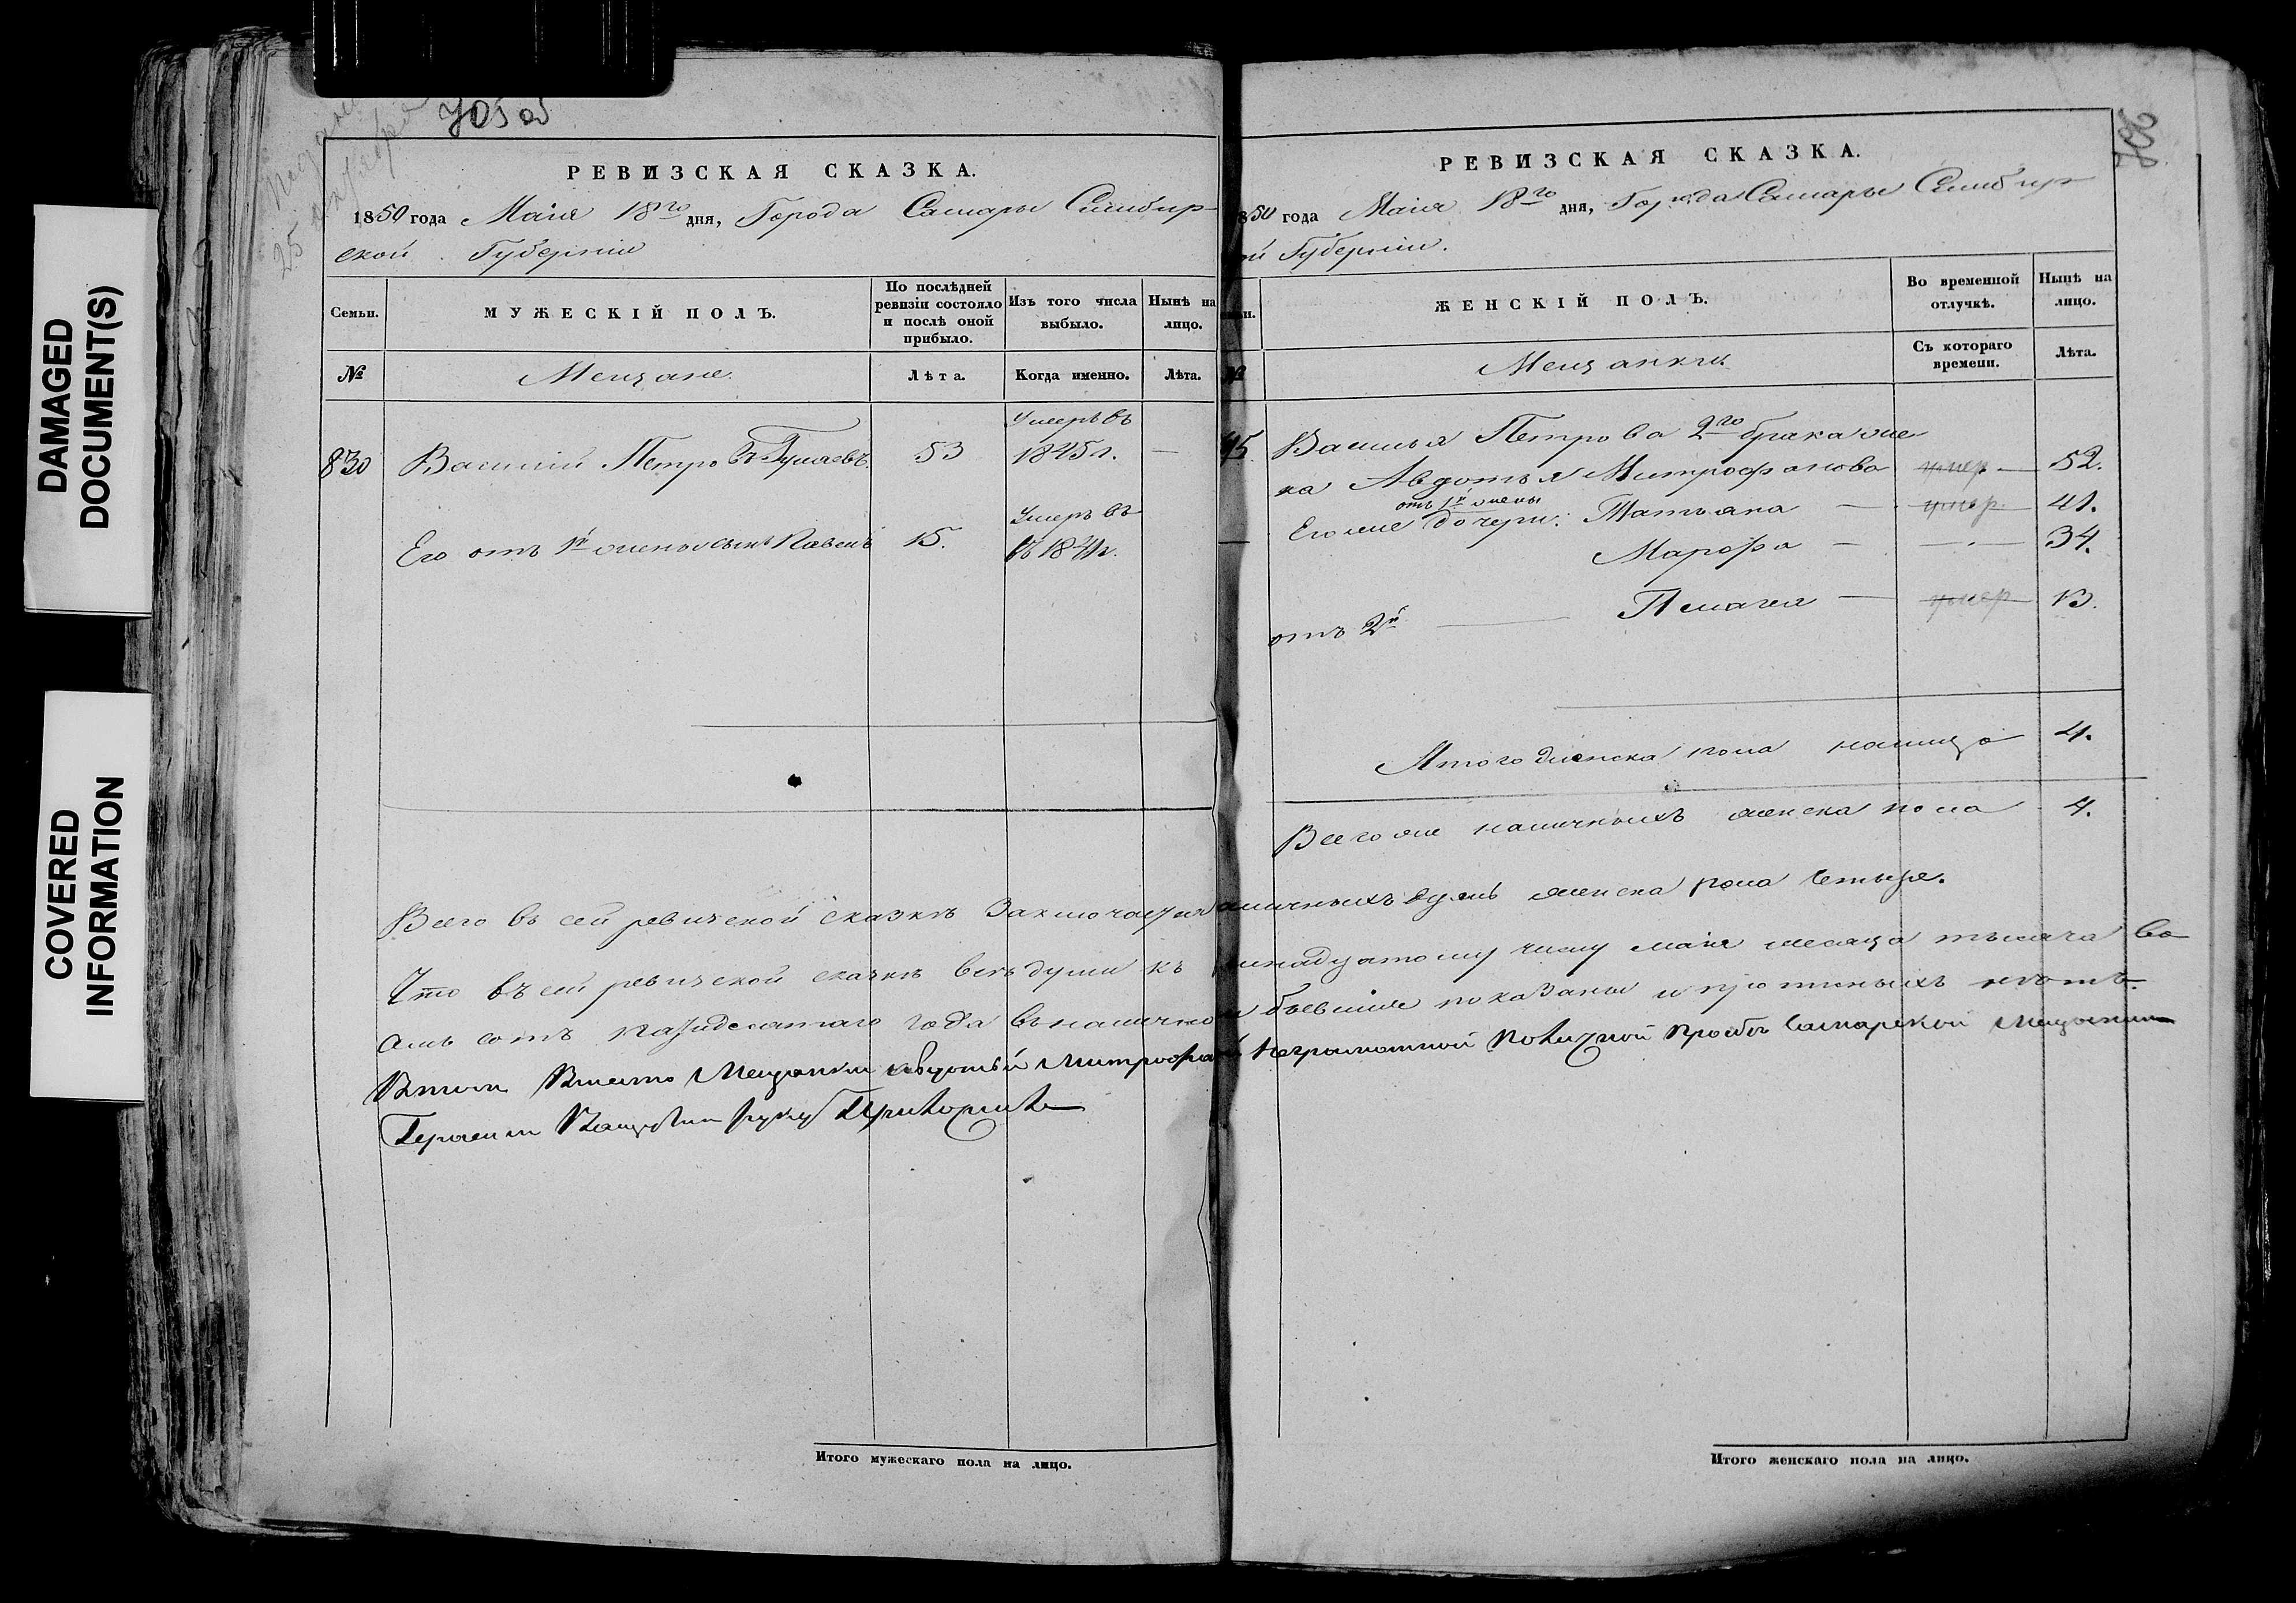 DAMAGED
DOCUMENT(S)
COVERED
INFORMATION
705 об
РЕВИЗСКАЯ СКАЗКА.
1850 года Маія 18го дня, Города Самары Симбир-
ской Губерніи
Семьи.
МУЖЕСКІЙ ПОЛЪ.
По послѣдней
ревизіи состояло
и послѣ оной
прибыло.
Изъ того числа
выбыло.
Нынѣ на
лицо.
№
Мещане.
Лѣта.
Когда именно.
Лѣта.
830
Василій Петровъ
53
Умеръ въ
1845 г.
—
Его отъ 1й жены сынъ Павелъ
15.
Умеръ въ
Всего въ сей ревизской сказкѣ Заключается
Что въ сей ревизской сказкѣ всѣ души къ
года въ
Вмѣсто Мещанки Авдотьи Митрофан
Герасим руку Приложил
Итого мужескаго пола на лицо.
706
РЕВИЗСКАЯ СКАЗКА.
850 года Маія 18го дня, Города Самары Симбирс
ой Губерніи.
ЖЕНСКІЙ ПОЛЪ.
Во временной
отлучкѣ.
Нынѣ на
лицо.
№
Мещанки
Съ котораго
времени.
Лѣта.
Василья Петрова 2го брака же-
на Авдотья Митрофанова
умер —
52.
отъ 1й жены
Его же дочери: Татьяна —
умер
41.
Марфа —
34.
отъ 2й — Пелагея —
умер
13.
Итого женска пола налицо
4.
Всего же наличныхъ женска пола
4.
аличныхъ душъ женска пола Четыре.
надцатому числу маія месяца тысяча во
бывшіе показаны и нѣтъ.
неграмотной просбе Самарской
Итого женскаго пола на лицо.